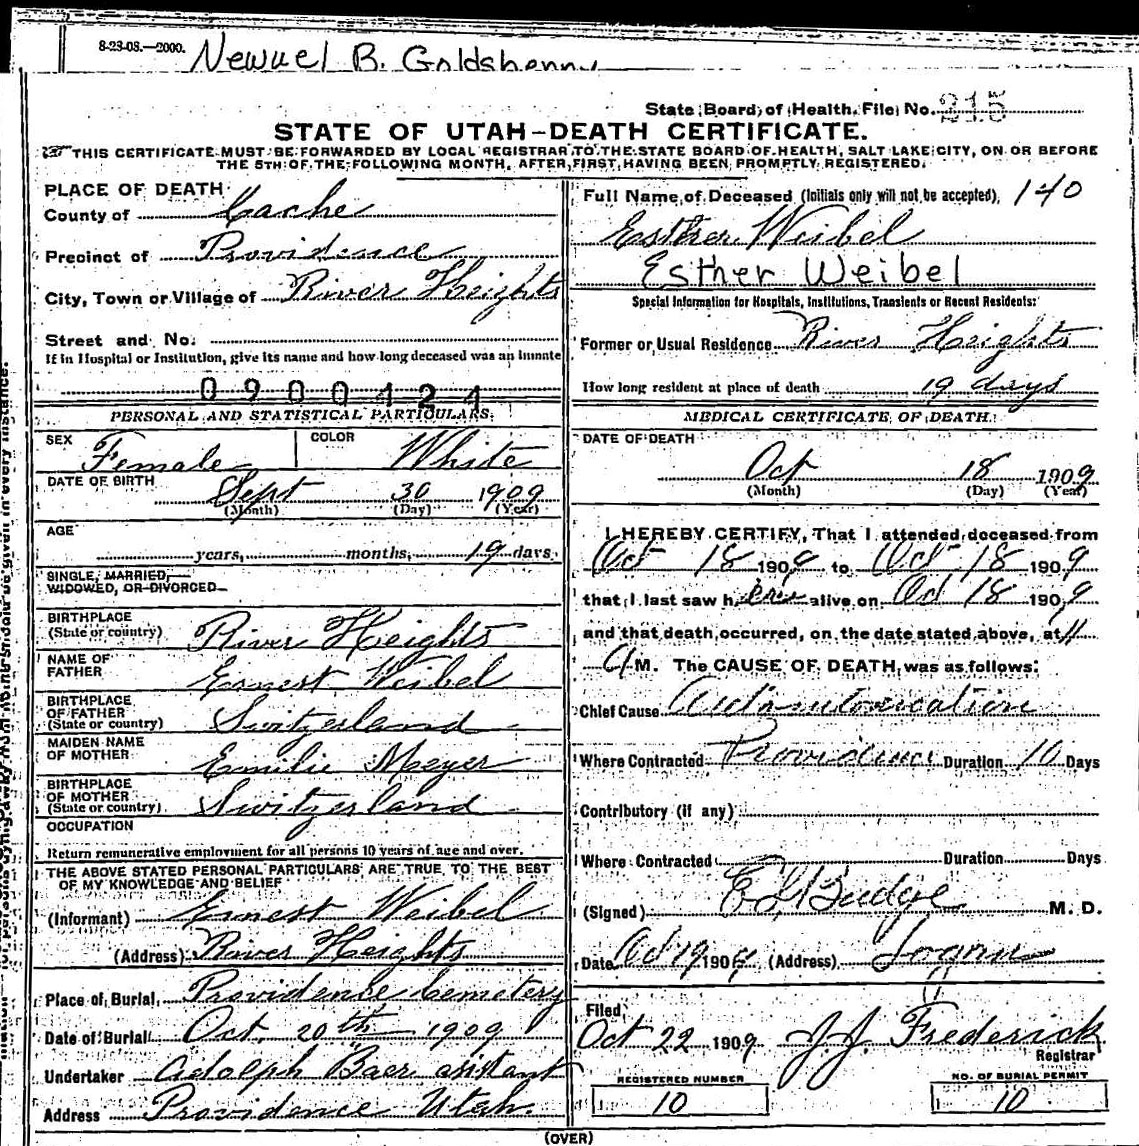 8-23-08.—2000.
State Board of Health File No. 215
STATE OF UTAH—DEATH CERTIFICATE.
THIS CERTIFICATE MUST BE FORWARDED BY LOCAL REGISTRAR TO THE STATE BOARD OF HEALTH, SALT LAKE CITY, ON OR BEFORE
THE 5TH OF THE FOLLOWING MONTH, AFTER FIRST HAVING BEEN PROMPTLY REGISTERED.
PLACE OF DEATH
County of Cache
Precinct of Providence
City, Town or Village of River Heights
Street and No.
If in Hospital or Institution, give its name and how long deceased was an inmate
0900424
PERSONAL AND STATISTICAL PARTICULARS.
SEX Female COLOR White
DATE OF BIRTH Sept 30 1909
(Month) (Day) (Year)
AGE
years, months, 19 days
SINGLE, MARRIED,
WIDOWED, OR DIVORCED
BIRTHPLACE
(State or country) River Heights
NAME OF
FATHER Ernest Weibel
BIRTHPLACE
OF FATHER
(State or country) Switzerland
MAIDEN NAME
OF MOTHER Emilie Meyer
BIRTHPLACE
OF MOTHER
(State or country) Switzerland
OCCUPATION
Return remunerative employment for all persons 10 years of age and over.
THE ABOVE STATED PERSONAL PARTICULARS ARE TRUE TO THE BEST
OF MY KNOWLEDGE AND BELIEF
(Informant) Ernest Weibel
(Address) River Heights
Place of Burial, Providence Cemetery
Date of Burial Oct. 20th 1909
Undertaker Adolph Baer asistant
Address Providence Utah.
Full Name of Deceased (Initials only will not be accepted), 140
Esther Weibel
Esther Weibel
Special Information for Hospitals, Institutions, Transients or Recent Residents:
Former or Usual Residence River Heights
How long resident at place of death 19 days
MEDICAL CERTIFICATE OF DEATH.
DATE OF DEATH
Oct 18 1909
(Month) (Day) (Year)
I HEREBY CERTIFY, That I attended deceased from
Oct 18 1909 to Oct 18 1909
that I last saw her alive on Oct 18 1909
and that death occurred, on the date stated above, at 11
A M. The CAUSE OF DEATH, was as follows:
Chief Cause
Where Contracted Providence Duration 10 Days
Contributory (if any)
Where Contracted Duration Days
(Signed) Budge M. D.
Date Oct 19 190 (Address) Logan
Filed
Oct 22 1909 J. J. Frederick
Registrar
REGISTERED NUMBER
10
NO. OF BURIAL PERMIT
10
(OVER)